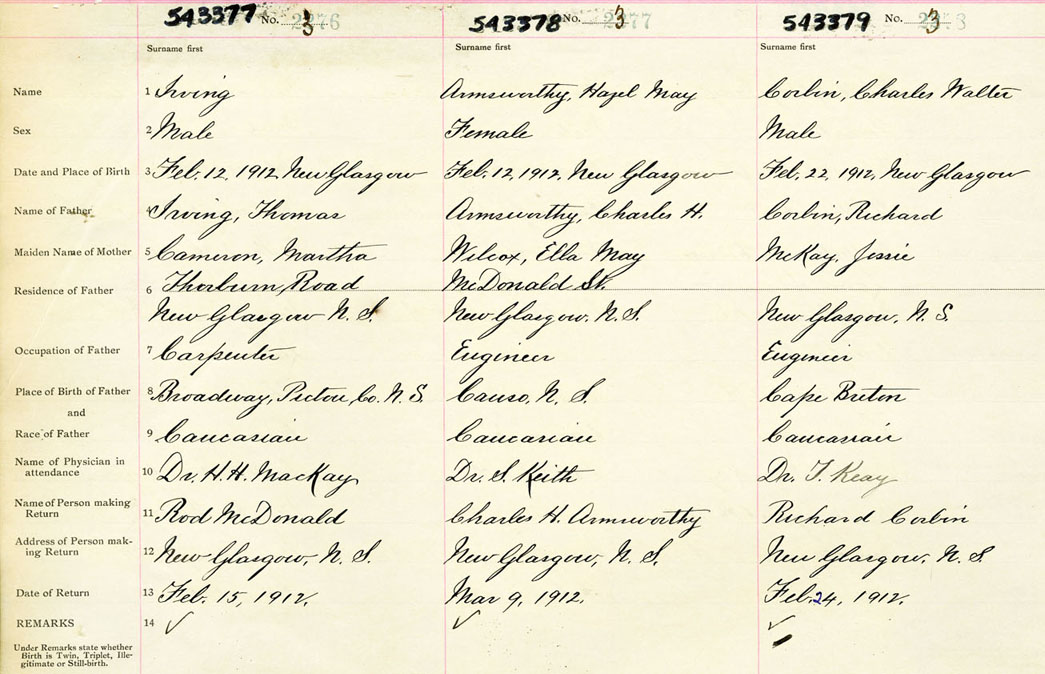 543377 No. 2276 3 543378 No. 2277 3 543379 No. 2278 3
Surname first Surname first Surname first
Name 1 Irving Armsworthy, Hazel May Corbin, Charles Walter
Sex 2 Male Female Male
Date and Place of Birth 3 Feb. 12, 1912, New Glasgow Feb. 12, 1912, New Glasgow Feb. 22, 1912, New Glasgow
Name of Father 4 Irving, Thomas Armsworthy, Charles H. Corbin, Richard
Maiden Name of Mother 5 Cameron, Martha Wilcox, Ella May McKay, Jessie
Residence of Father 6 Thorburn Road McDonald St.
New Glasgow N. S. New Glasgow, N. S. New Glasgow, N. S.
Occupation of Father 7 Carpenter Engineer Engineer
Place of Birth of Father 8 Broadway, Pictou Co. N. S. Canso, N. S. Cape Breton
and
Race of Father 9 Caucasian Caucasian Caucasian
Name of Physician in
attendance 10 Dr. H. H. MacKay Dr. S. Keith Dr. T. Keay
Name of Person making
Return 11 Rod McDonald Charles H. Armsworthy Richard Corbin
Address of Person mak-
ing Return 12 New Glasgow, N. S. New Glasgow, N. S. New Glasgow, N. S.
Date of Return 13 Feb. 15, 1912. Mar 9, 1912. Feb. 24, 1912.
REMARKS 14 ✓ ✓ ✓
Under Remarks state whether
Birth is Twin, Triplet, Ille-
gitimate or Still-birth.